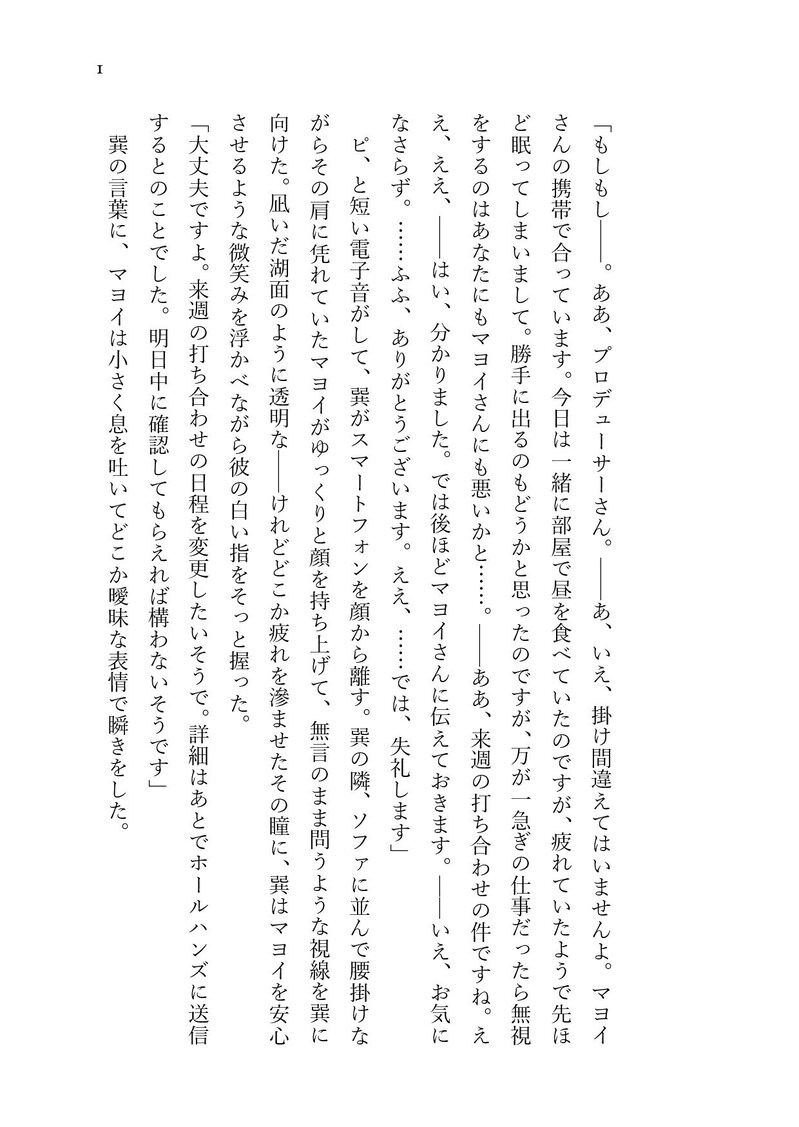 1
「もしもし――。ああ、プロデューサーさん。――あ、いえ、掛け間違えてはいませんよ。マヨイ
さんの携帯で合っています。今日は一緒に部屋で昼を食べていたのですが、疲れていたようで先ほ
ど眠ってしまいまして。勝手に出るのもどうかと思ったのですが、万が一急ぎの仕事だったら無視
をするのはあなたにもマヨイさんにも悪いかと……。――ああ、来週の打ち合わせの件ですね。え
え、ええ、――はい、分かりました。では後ほどマヨイさんに伝えておきます。――いえ、お気に
なさらず。……ふふ、ありがとうございます。ええ、……では、失礼します」
ピ、と短い電子音がして、巽がスマートフォンを顔から離す。巽の隣、ソファに並んで腰掛けな
がらその肩に凭れていたマヨイがゆっくりと顔を持ち上げて、無言のまま問うような視線を巽に
向けた。凪いだ湖面のように透明な――けれどどこか疲れを滲ませたその瞳に、巽はマヨイを安心
させるような微笑みを浮かべながら彼の白い指をそっと握った。
「大丈夫ですよ。来週の打ち合わせの日程を変更したいそうで。詳細はあとでホールハンズに送信
するとのことでした。明日中に確認してもらえれば構わないそうです」
巽の言葉に、マヨイは小さく息を吐いてどこか曖昧な表情で瞬きをした。